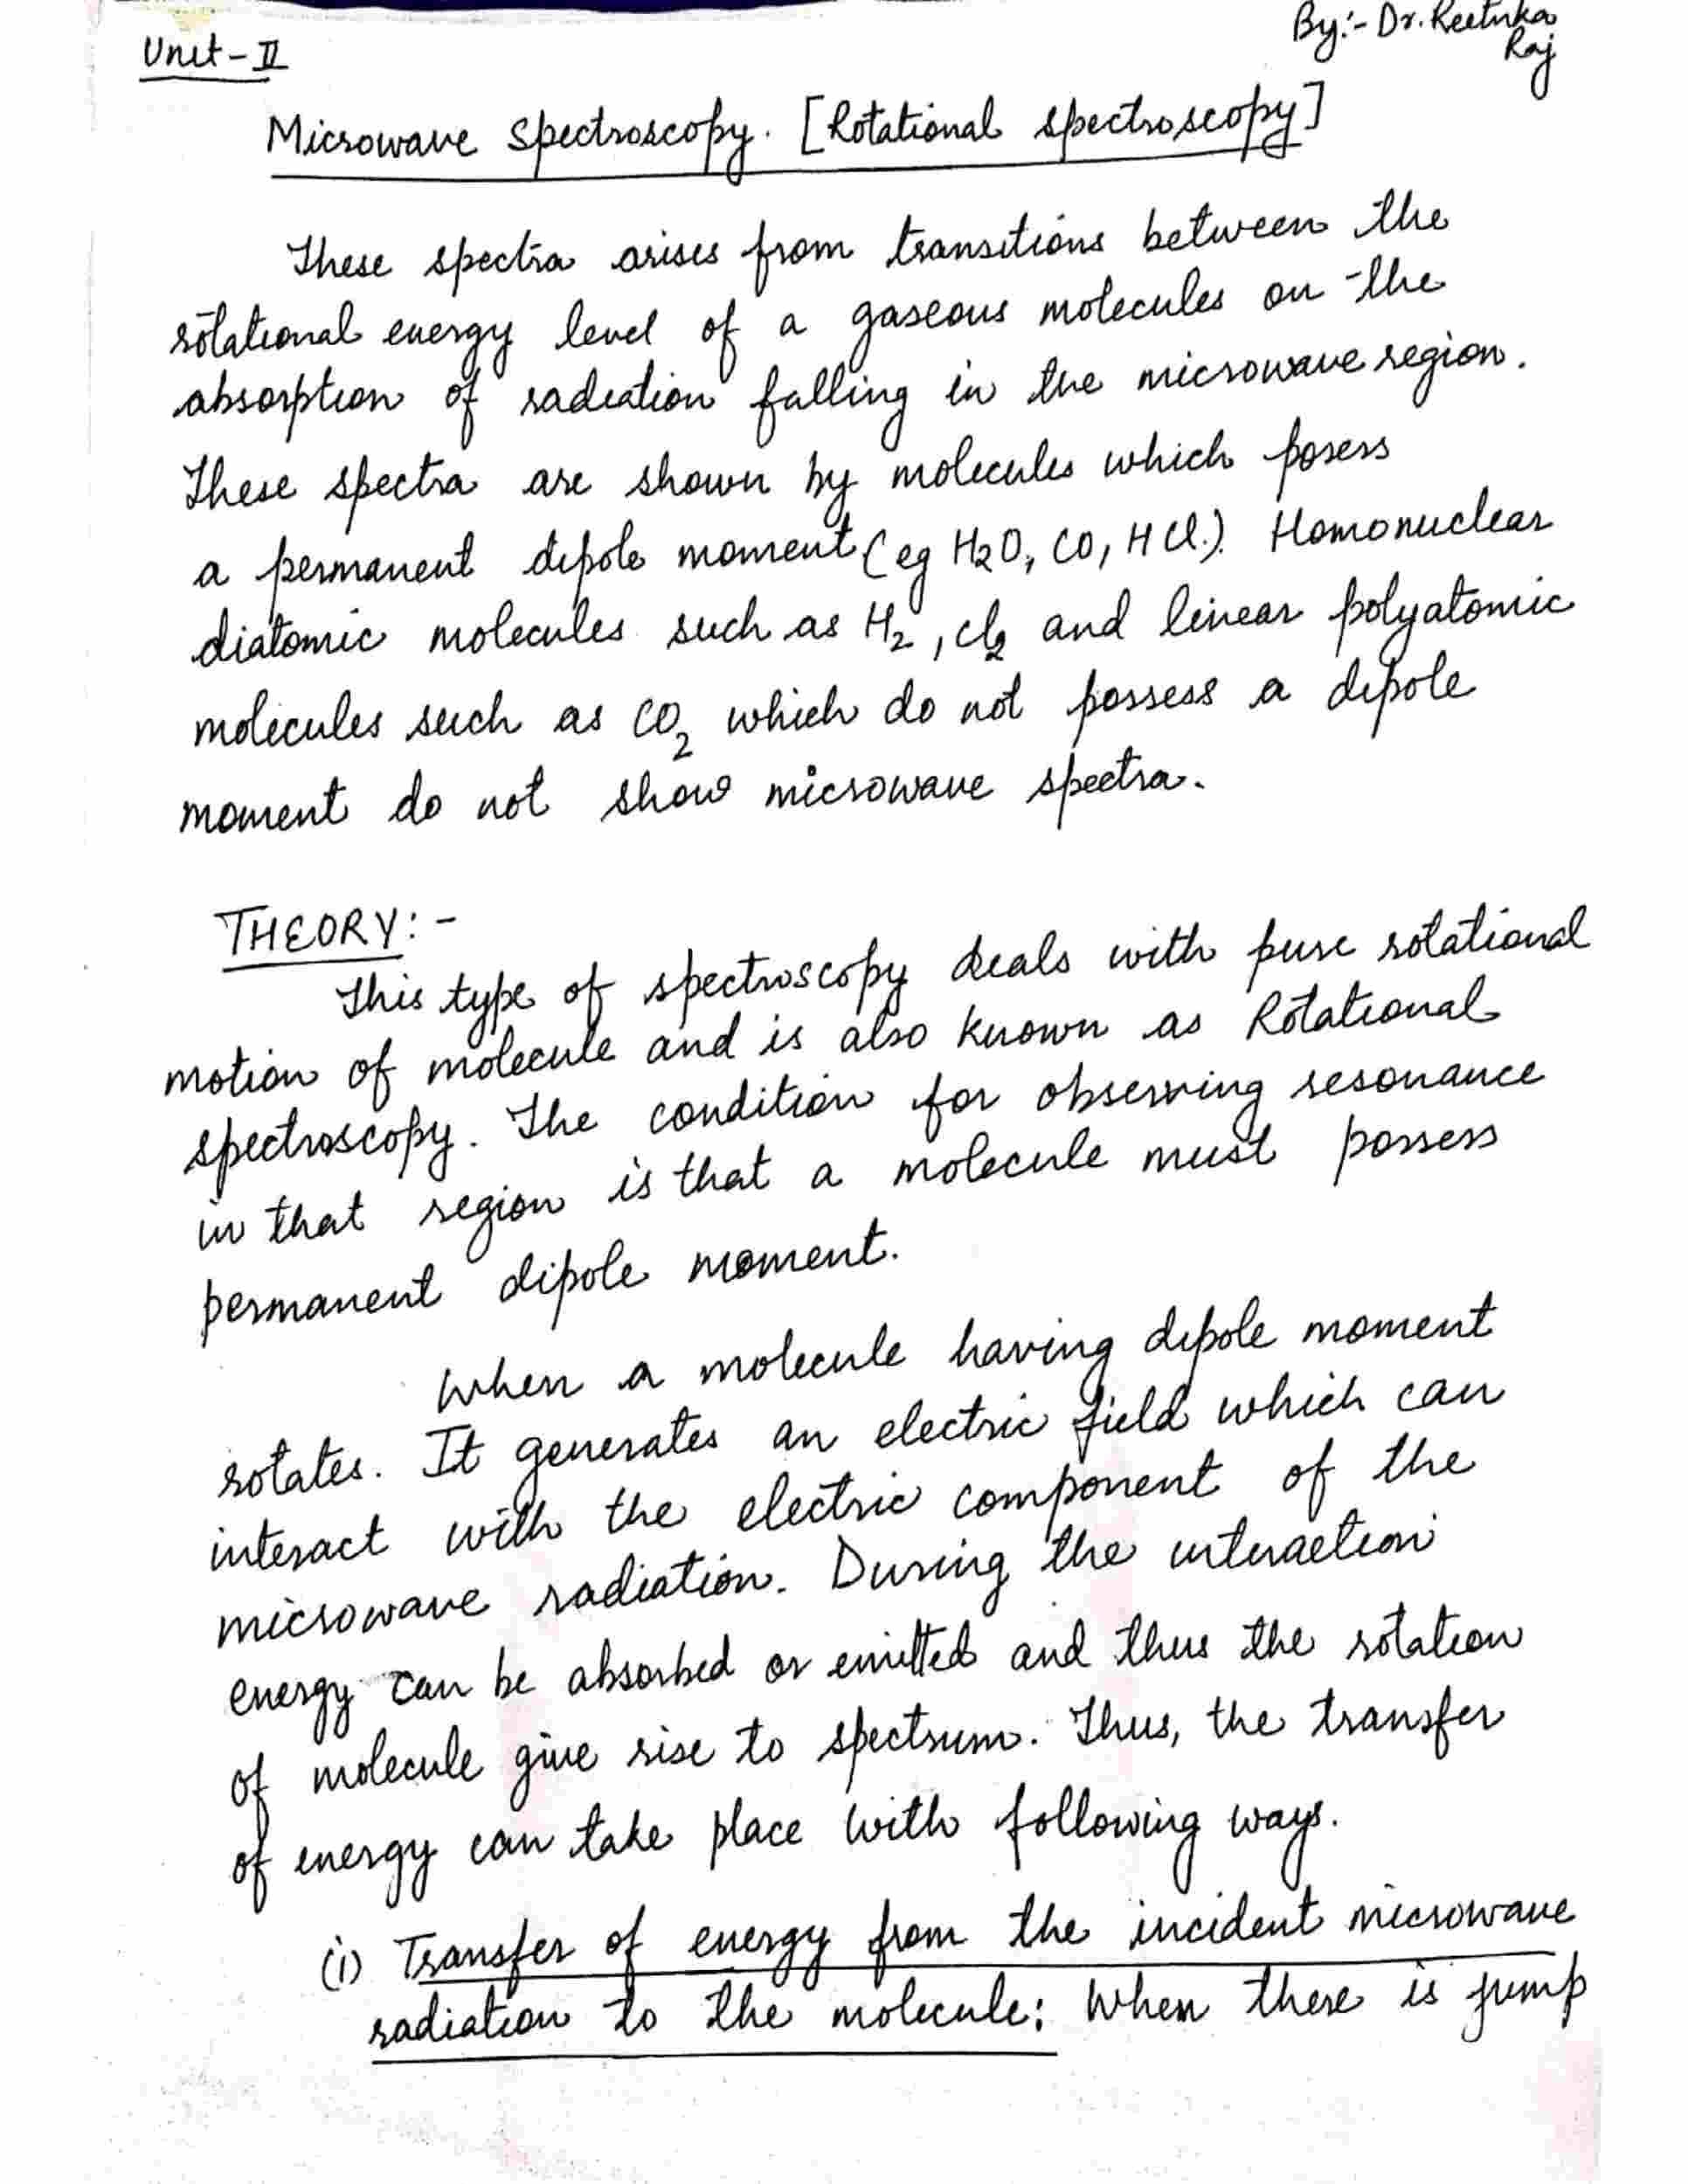 By:- Dr. Reetuka
Raj
Unit-II
Microwave Spectroscopy. [Rotational spectroscopy]
These spectra arises from transitions between the
rotational energy level of a gaseous molecules on the
absorption of radiation falling in the microwave region.
These spectra are shown by molecules which posess
a permanent dipole moment (eg H2O, CO, HCl.). Homonuclear
diatomic molecules such as H2, Cl2 and linear polyatomic
molecules such as CO2 which do not possess a dipole
moment do not show microwave spectra.
THEORY:-
This type of spectroscopy deals with pure rotational
motion of molecule and is also known as Rotational
spectroscopy. The condition for observing resonance
in that region is that a molecule must possess
permanent dipole moment.
When a molecule having dipole moment
rotates. It generates an electric field which can
interact with the electric component of the
microwave radiation. During the interaction
energy can be absorbed or emitted and thus the rotation
of molecule give rise to spectrum. Thus, the transfer
of energy can take place with following ways.
(i) Transfer of energy from the incident microwave
radiation to the molecule: When there is jump